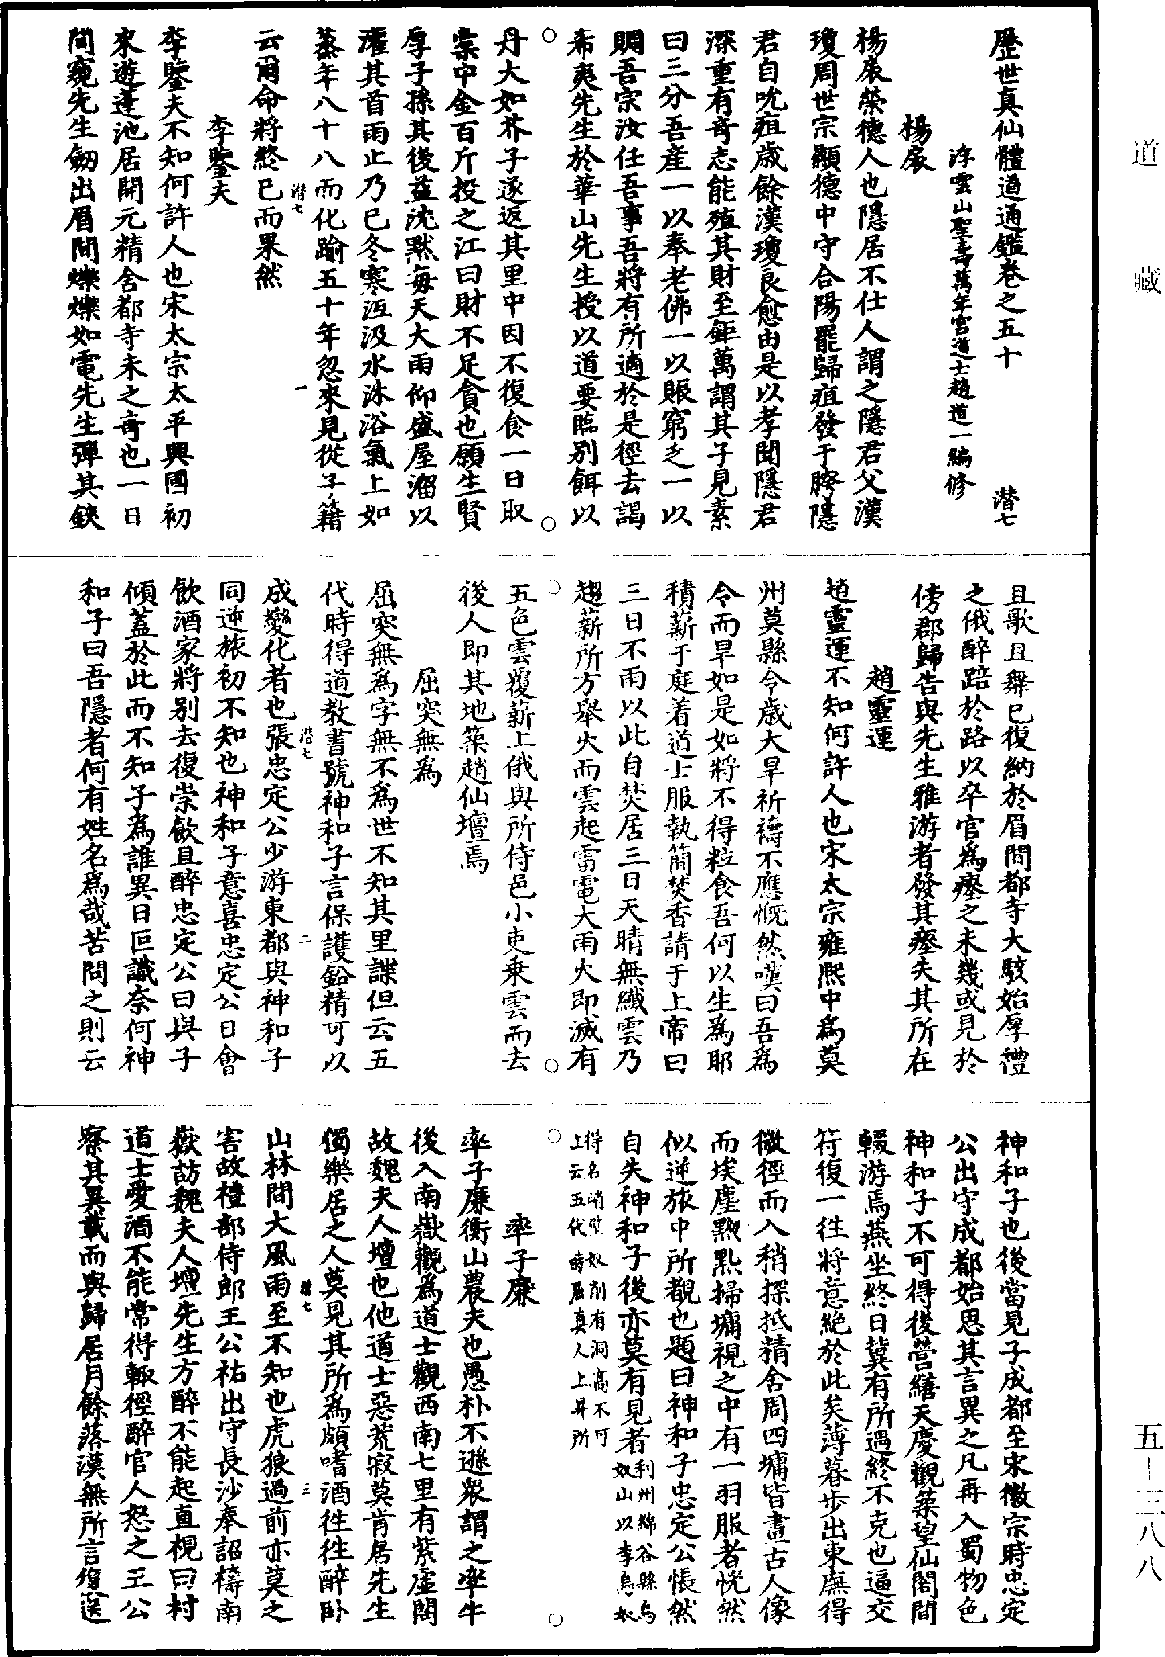 道藏
五—三八八
歷世真仙體道通鑑卷之五十 潛七
浮雲山聖壽萬年宮道士趙道一編修
楊扆
楊扆榮德人也隱居不仕人謂之隱君父漢
瓊周世宗顯德中守合陽罷歸疽發于胳隱
君自吮疽歲餘漢瓊良愈由是以孝聞隱君
深重有奇志能殖其財至鉅萬謂其子見素
曰三分吾産一以奉老佛一以賑窮乏一以
賙吾宗汝任吾事吾將有所適於是徑去謁
希夷先生於華山先生授以道要臨別餌以
丹大如芥子遂返其里中因不復食一日取
橐中金百斤投之江曰財不足貪也願生賢
厚子孫其後益沈默每天大雨仰盛屋溜以
濯其首雨止乃已冬寒沍汲水沐浴氣上如
蒸年八十八而化踰五十年忽來見從子籍
云爾命將終已而果然
潛七
一
李鑒夫
李鑒夫不知何許人也宋太宗太平興國初
來遊蓮池居開元精舍都寺未之奇也一日
間窺先生劒出眉間爍爍如電先生彈其鋏
且歌且舞已復納於眉間都寺大駭始厚禮
之俄醉踣於路以卒官爲瘞之未幾或見於
傍郡歸告與先生雅游者發其瘞失其所在
趙靈運
趙靈運不知何許人也宋太宗雍熙中爲莫
州莫縣令歲大旱祈禱不應慨然嘆曰吾爲
令而旱如是如將不得粒食吾何以生爲耶
積薪于庭着道士服執簡焚香請于上帝曰
三日不雨以此自焚居三日天晴無纖雲乃
趨薪所方舉火而雲起雷電大雨火即滅有
五色雲覆薪上俄與所侍邑小吏乘雲而去
後人即其地築趙仙壇焉
屈突無爲
屈突無爲字無不爲世不知其里諜但云五
代時得道教書號神和子言保護鉛精可以
成變化者也張忠定公少游東都與神和子
潛七
二
同逆旅初不知也神和子意喜忠定公日會
飲酒家將别去復崇飲且醉忠定公曰與子
傾蓋於此而不知子爲誰異日叵識奈何神
和子曰吾隱者何有姓名爲哉苦問之則云
神和子也後當見子成都至宋徽宗時忠定
公出守成都始思其言異之凡再入蜀物色
神和子不可得後營繕天慶觀築望仙閣間
輟游焉燕坐終日冀有所遇終不克也逼交
符復一往將意絶於此矣薄暮步出東廡得
微徑而入稍探抵精舍周四墉皆畫古人像
而埃塵㸃㸃掃墉視之中有一羽服者恍然
似逆旅中所覩也題曰神和子忠定公悵然
自失神和子後亦莫有見者利州綿谷縣烏
奴山以李烏奴
得名峭壁奴剤有洞高不可
上云五代時屈真人上昇所
率子廉
率子廉衡山農夫也愚朴不遜衆謂之率牛
後入南嶽觀爲道士觀西南七里有紫虛閣
故魏夫人壇也他道士惡荒寂莫肯居先生
獨樂居之人莫見其所爲頗嗜酒往往醉卧
山林間大風雨至不知也虎狼過前亦莫之
潛七
三
害故禮部侍郎王公祐出守長沙奉詔禱南
嶽訪魏夫人壇先生方醉不能起直視曰村
道士愛酒不能常得輒徑醉官人恕之王公
察其異載而與歸居月餘落漠無所言復送